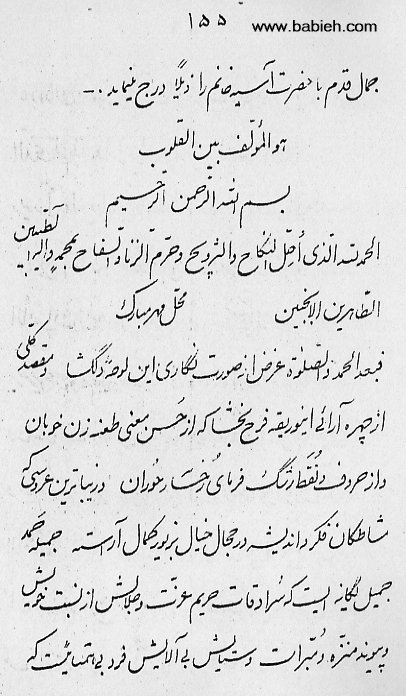 ۱۵۵
www.babieh.com
جمال قدم با حضرت آسیه خانم را ذیلاً درج مینماید .-
هو المؤلف بین القلوب
بسم الله الرحمن الرحیم
الحمدلله الذی أحل النکاح والتزویج و حرم الزنا والسفاح بمحمد و آله الطیبین
الطاهرین الانجبین محل مهر مبارک
فبعد الحمد والصلوة غرض از صورت نگاری این لوحه دلگشا و مقصد کلی
از چهره آرائی اینوریقه فرح بخشا که از حسن معنی طعنه زن خوبان
و از حروف و نقط رنگ فرمای رخسار حوران و زیباترین عروسی که
مشاطگان فکر و اندیشه در حجال خیال بزیور کمال آراسته جمیله حمد
جمیل یگانه ایست که سرادقات حریم عزت و جلالش از نسبت خویش
و پیوند منزه و مبرات و ستایش بی آلایش فرد بی همتائیست که